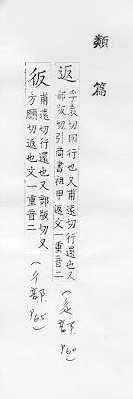 類篇
返 孚袁切回行也又甫遠切行還也又
部版切引尚書祖甲返文一重音二
(辵部 p60)
𢓉 甫遠切行還也又部版切又
方願切返也文一重音二
(彳部 p65)